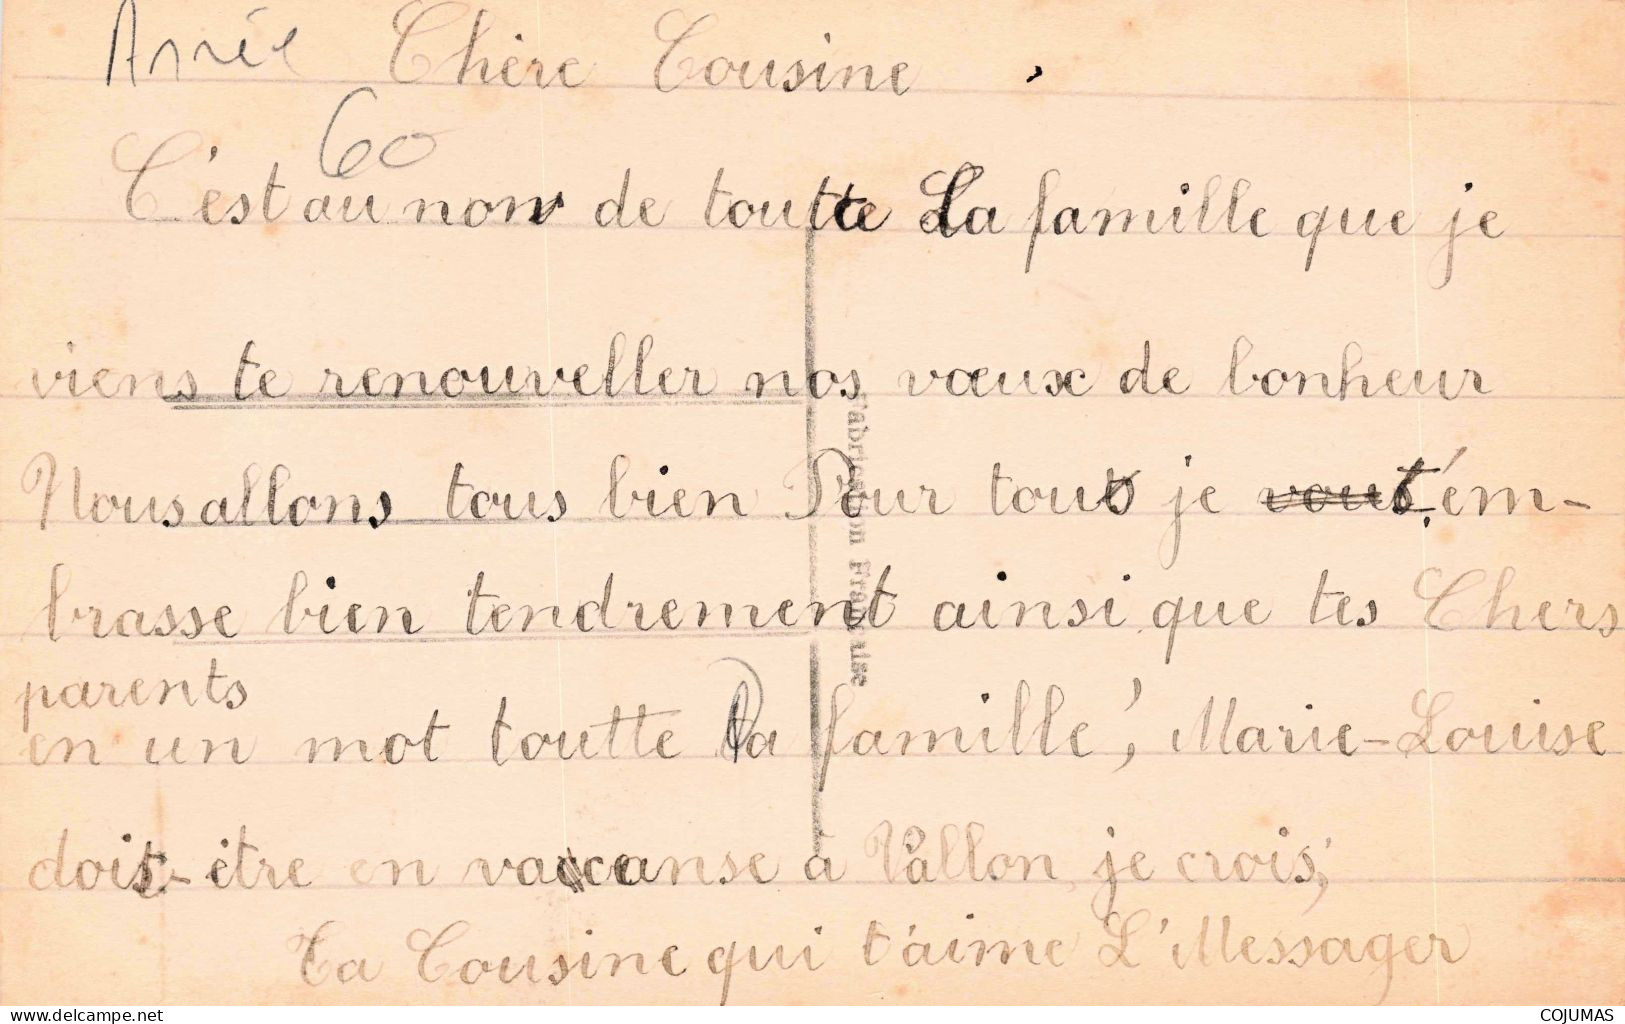 Année Chère Cousine
60
C'est au nom de toutte La famille que je
viens te renouveller nos vœux de bonheur
Nous allons tous bien Pour tous je vous t'ém-
brasse bien tendrement ainsi que tes Chers
parents
en un mot toutte la famille, Marie-Louise
doit-être en vaccanse à Vallon je crois,
Ta Cousine qui t'aime L'Messager
Fabrication Française
www.delcampe.net
COJUMAS